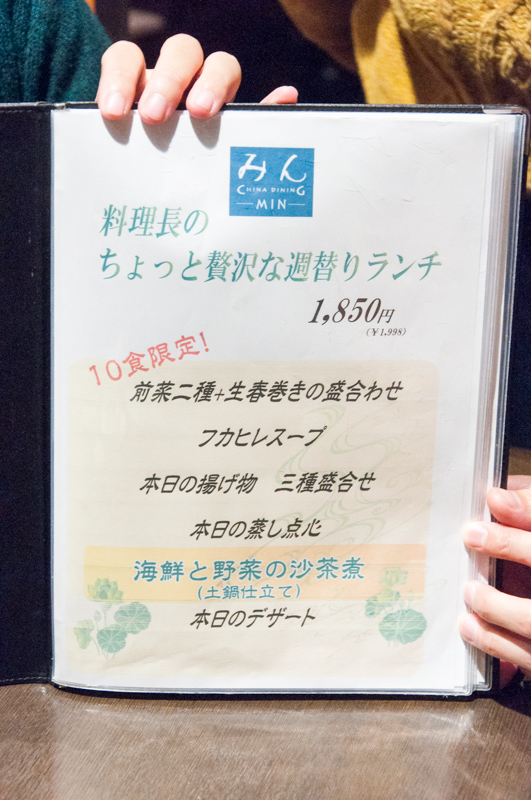 みん
CHINA DINING
MIN
料理長の
ちょっと贅沢な週替りランチ
1,850円
(￥1,998)
10食限定!
前菜二種+生春巻きの盛合わせ
フカヒレスープ
本日の揚げ物　三種盛合せ
本日の蒸し点心
海鮮と野菜の沙茶煮
(土鍋仕立て)
本日のデザート